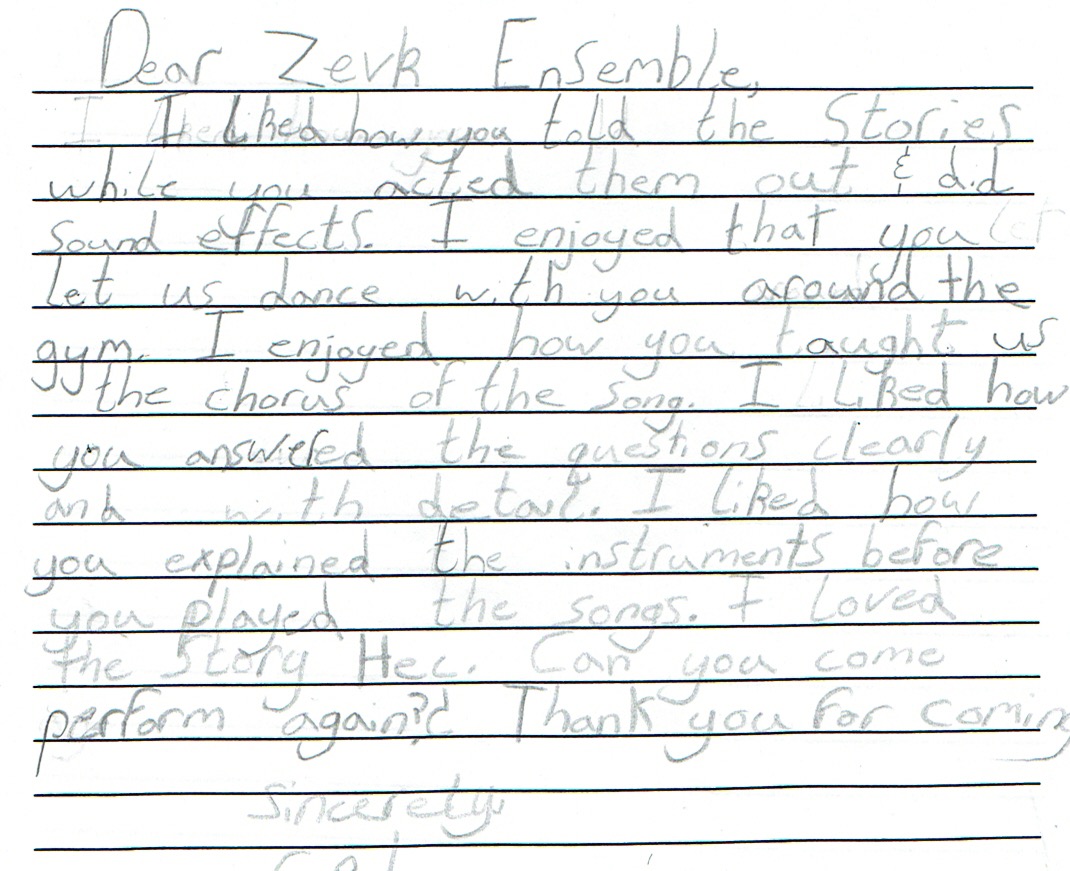 Dear Zevk Ensemble,
I I liked how you told the Stories
while you acted them out & did
sound effects. I enjoyed that you
let us dance with you around the
gym. I enjoyed how you taught us
the chorus of the song. I liked how
you answered the questions clearly
and with detail. I liked how
you explained the instruments before
you played the songs. I loved
the Story Hec. Can you come
perform again? Thank you for coming
Sincerely,